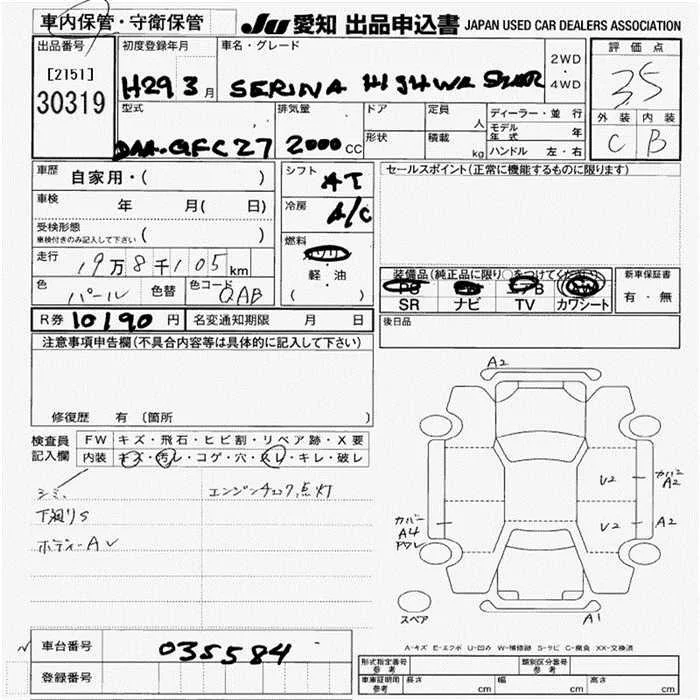 車内保管・守衛保管
JU 愛知 出品申込書 JAPAN USED CAR DEALERS ASSOCIATION
出品番号
[2151]
30319
初度登録年月
H29 3 月
車名・グレード
SERINA HIGHWA STAR
2WD
・
4WD
評価点
3.5
外装 内装
C B
型式
DAA-GFC27
排気量
2000 CC
ドア
形状
定員
人
積載
kg
ディーラー・並行
モデル年式 年
ハンドル 左・右
車歴 自家用・( )
車検 年 月( 日)
受検形態
車検付きのみ記入して下さい ( )
走行 19万8千105 km
色 パール 色替 色コード QAB
シフト AT
冷房 A/C
燃料 ガソリン
軽・油
( )
セールスポイント(正常に機能するものに限ります)
装備品(純正品に限り○をつけてください)
PS PW エアB AW
SR ナビ TV カワシート
新車保証書
有・無
R券 10190 円 名変通知期限 月 日
後日品
注意事項申告欄(不具合内容等は具体的に記入して下さい)
修復歴 有 〔箇所
検査員記入欄
FW キズ・飛石・ヒビ割・リペア跡・X要
内装 キズ・汚レ・コゲ・穴・スレ・キレ・破レ
シミ、 エンジンチェック点灯
下廻りS
ボディーAV
A2
U2 カバー A2
U2 A2
カバー A4
スペア
A1
A-キズ E-エクボ U-凹み W-補修跡 S-サビ C-腐食 XX-交換済
車台番号 035584
登録番号
形式指定番号 参考 類別区分番号 参考
車庫証明用 参考 長さ cm 幅 cm 高さ cm